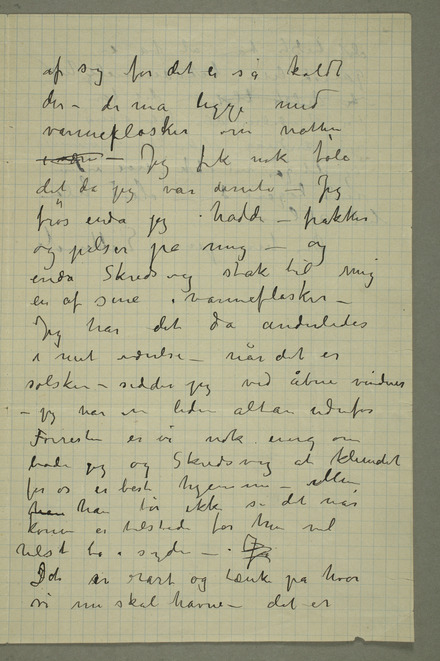 af sig for det er så koldt
der – de må ligge med
varmeflasker om natten
– Jeg fik nok føle
det da jeg var dernede – Jeg
frøs enda jeg hadde – frakker
og pelser på mig – og
enda Skredsvig stak til mig
en af sine varmeflasker –
Jeg har det da anderledes
i mit værelse – når det er
solskin – sidder jeg ved åbne vinduer
– jeg har en liden altan udenfor
Forresten er vi nok enig om
både jeg og Skredsvig at klimaet
for os er bedst hjemme –
han tør ikke si det når
konen er tilstede for hun vil
helst bo i syden – Ja
Det er rart og tænke på hvor
vi nu skal havne – det er